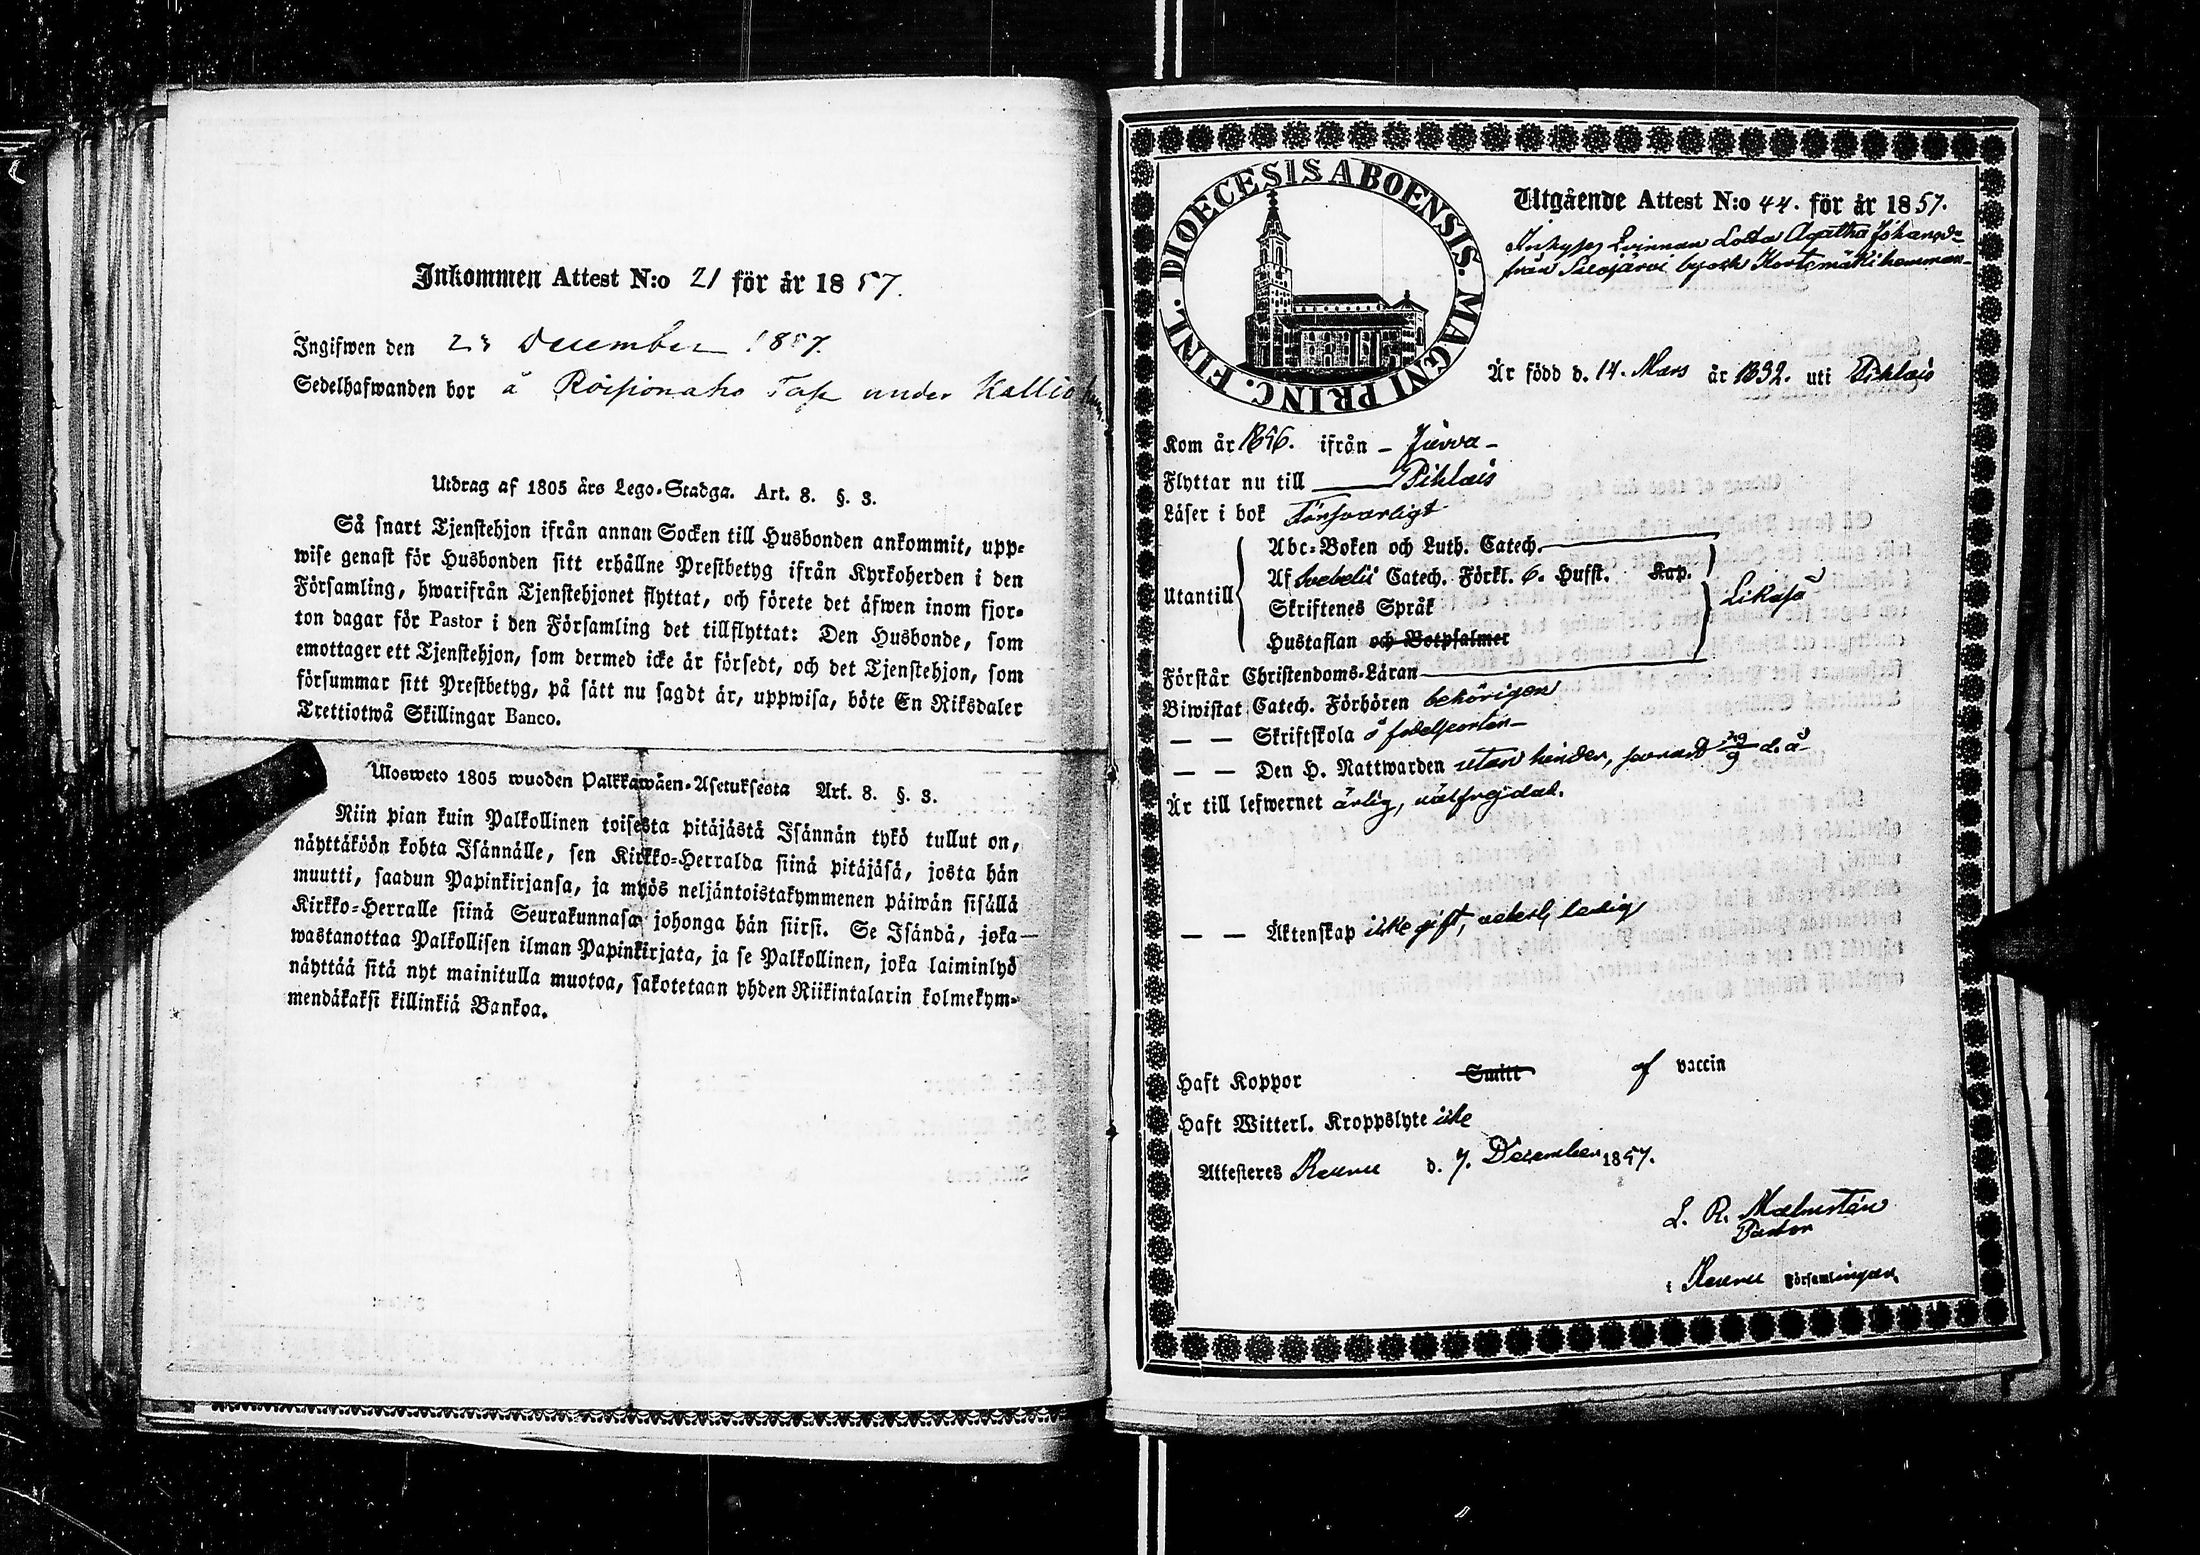 Inkommen Attest N:o 21 för år 1857.
Ingifwen den 23 December 1857.
Sedelhafwanden bor å Torp under Kallio
Utdrag af 1805 års Lego-Stadga. Art. 8. §. 3.
Så snart Tjenstehjon ifrån annan Socken till Husbonden ankommit, upp-
wise genast för Husbonden sitt erhållne Prestbetyg ifrån Kyrkoherden i den
Församling, hwarifrån Tjenstehjonet flyttat, och förete det äfwen inom fjor-
ton dagar för Pastor i den Församling det tillflyttat: Den Husbonde, som
emottager ett Tjenstehjon, som dermed icke är försedt, och det Tjenstehjon, som
försummar sitt Prestbetyg, på sätt nu sagdt är, uppwisa, böte En Riksdaler
Trettiotwå Skillingar Banco.
Ulosweto 1805 wuoden Palkkawäen-Asetuksesta Art. 8. §. 3.
Niin pian kuin Palkollinen toisesta pitäjästä Isännän tykö tullut on,
näyttäköön kohta Isännälle, sen Kirkko-Herralda siinä pitäjäsä, josta hän
muutti, saadun Papinkirjansa, ja myös neljäntoistakymmenen päiwän sisällä
Kirkko-Herralle siinä Seurakunnasa johonga hän siirsi. Se Isändä, joka
wastanottaa Palkollisen ilman Papinkirjata, ja se Palkollinen, joka laiminlyö
näyttää sitä nyt mainitulla muotoa, sakotetaan yhden Riikintalarin kolmekym-
mendäkaksi killinkiä Bankoa.
DIOECESIS ABOENSIS. MAGNI PRINC. FINL.
Utgående Attest N:o 44. för år 1857.
Inhyses Qvinnan Lotta Agatha Johansd:r
från byoch Kortemäki hemman
Är född d. 14. Mars år 1832. uti Pihlais
Kom år 1856. ifrån – –
Flyttar nu till Pihlais
Läser i bok Försvarligt
Utantill
Abc-Boken och Luth. Catech.
Af Svebelii Catech. Förkl. 6. Hufst. Kap.
Skriftenes Språk
Hustaflan och Botpsalmer
Likaså
Förstår Christendoms-Läran
Biwistat Catech. Förhören behörigen
— — Skriftskola å födelseorten
— — Den H. Nattwarden utan hinder, senast 29/9 d. å
Är till lefwernet ärlig, välfrejdad.
— — Äktenskap icke gift, ledig
Haft Koppor Smitt af vaccin
Haft Witterl. Kroppslyte icke
Attesteres d. 7. December 1857.
L. R. Malmstén
Pastor
i Församlingen